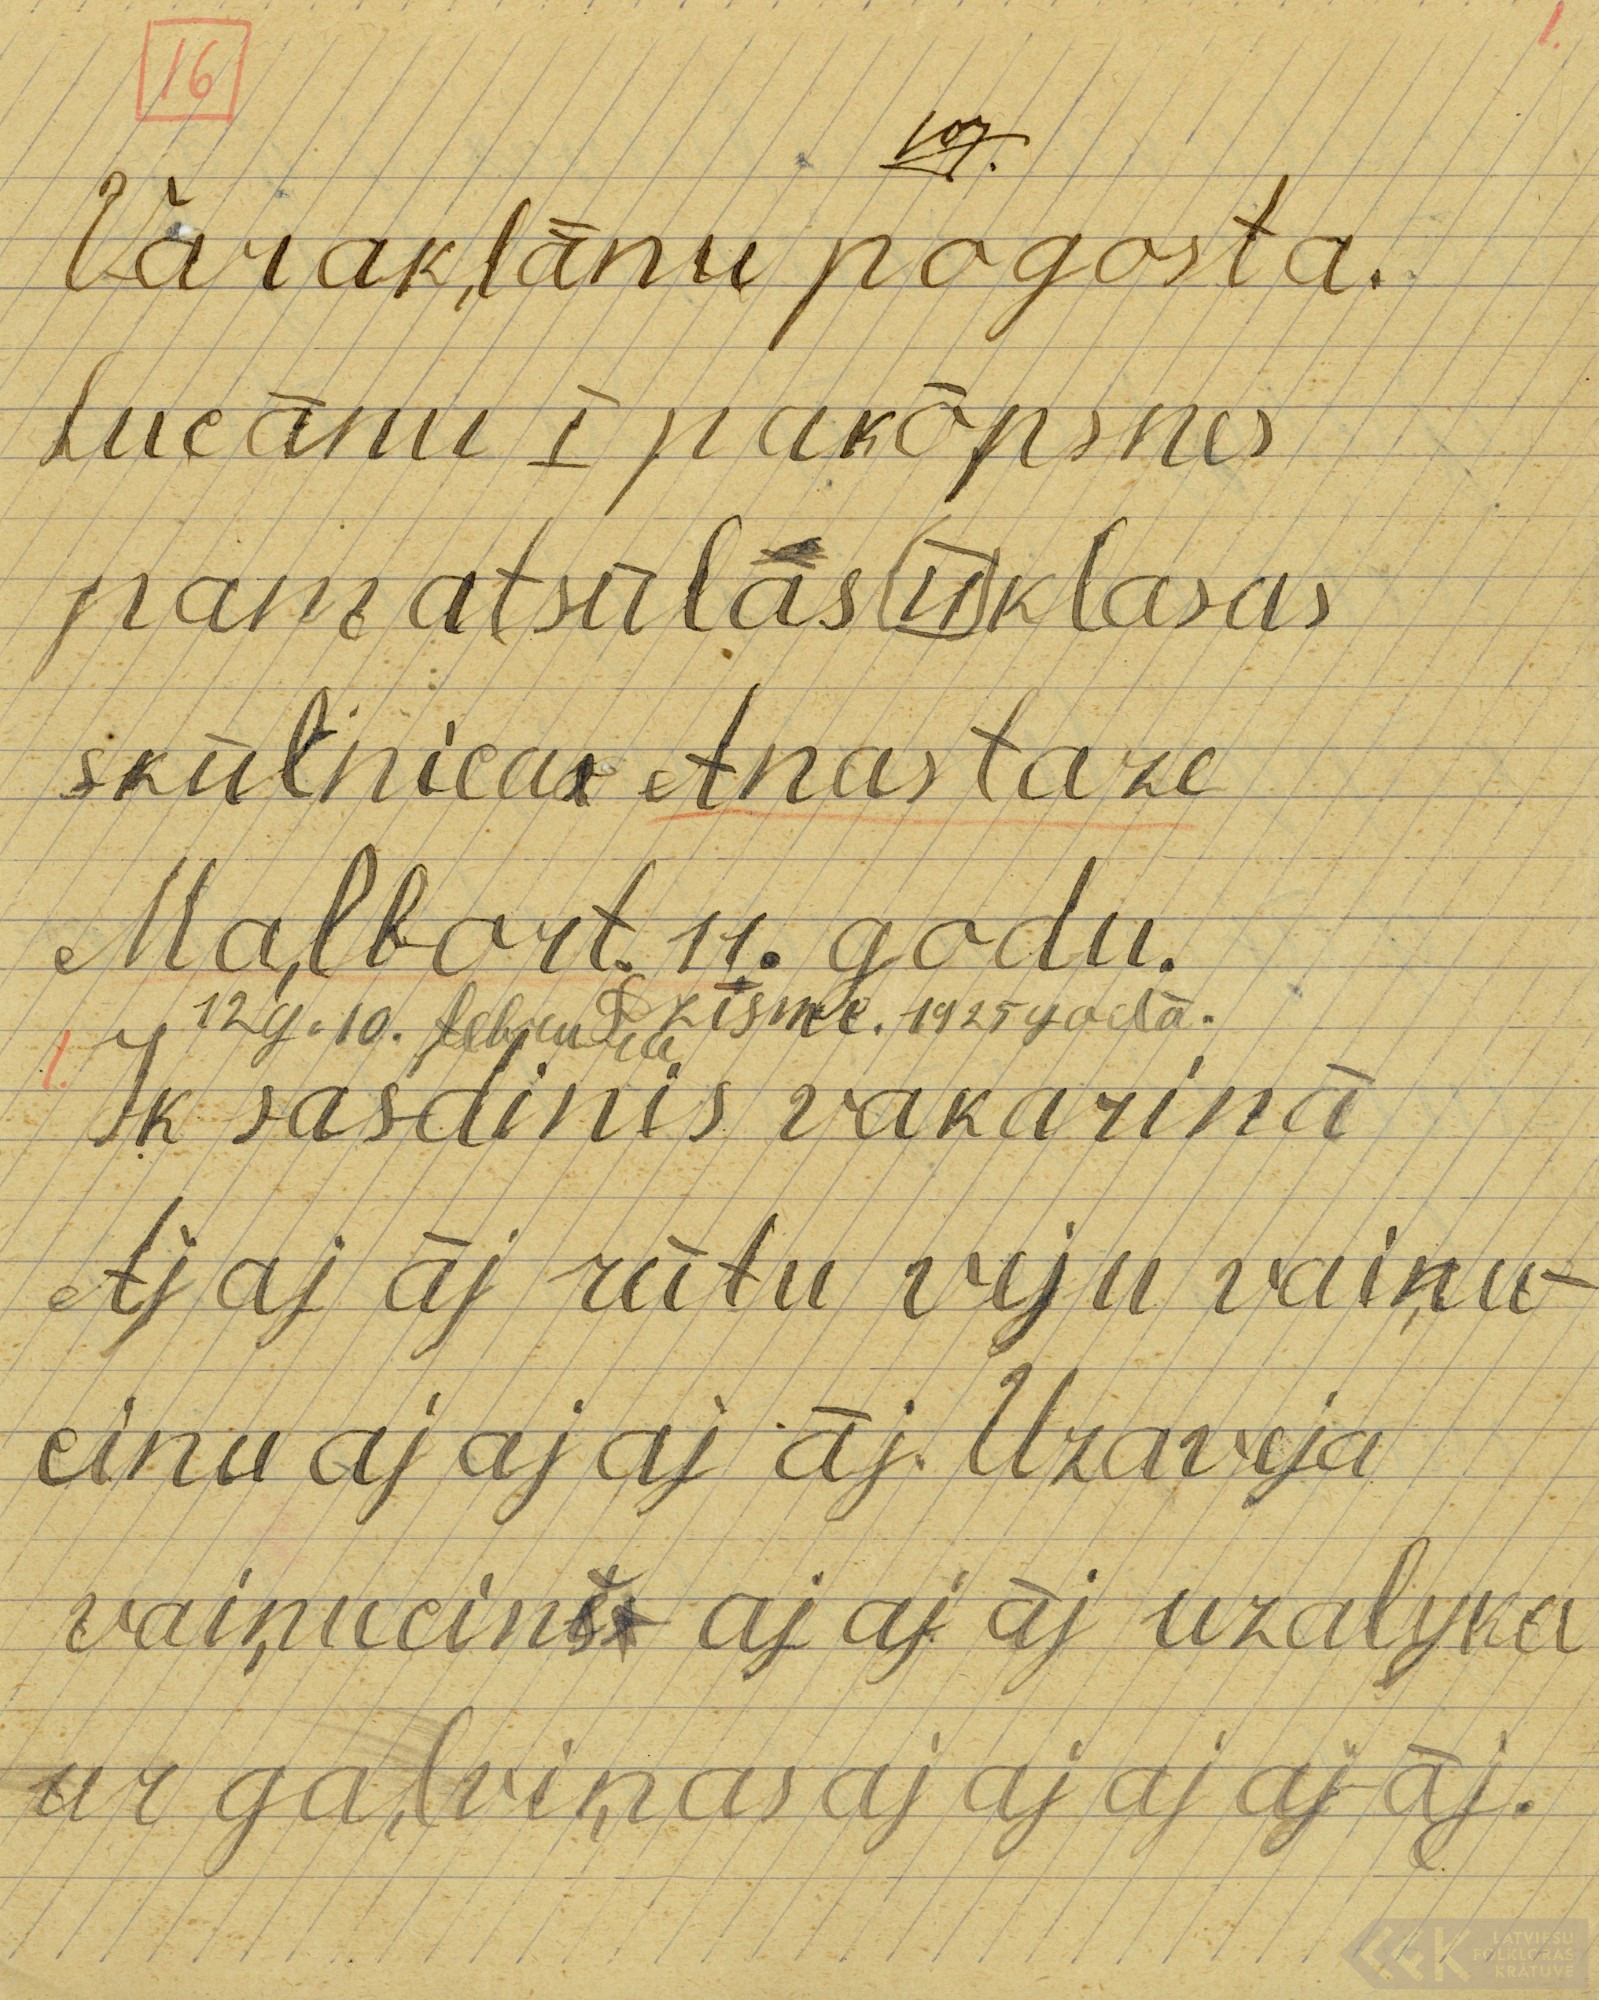 16
1.
107.
Vàrakļānu pogosta.
Lucānu I pakōpsnes
pamatsūlās II klasas
skūlnicas Anastaze
Maļbort. 11. godu.
12g. 10. februara Dzīsme. 1925 godā.
1. Ik sasdinis vakarinā
Aj aj āj rūtu viju vaiņu-
cinu aj aj aj āj. Uzaveja
vaiņucinu aj aj āj uzalyka
ur gaļviņas aj aj aj aj āj.
LATVIEŠU
FOLKLORAS
KRĀTUVE